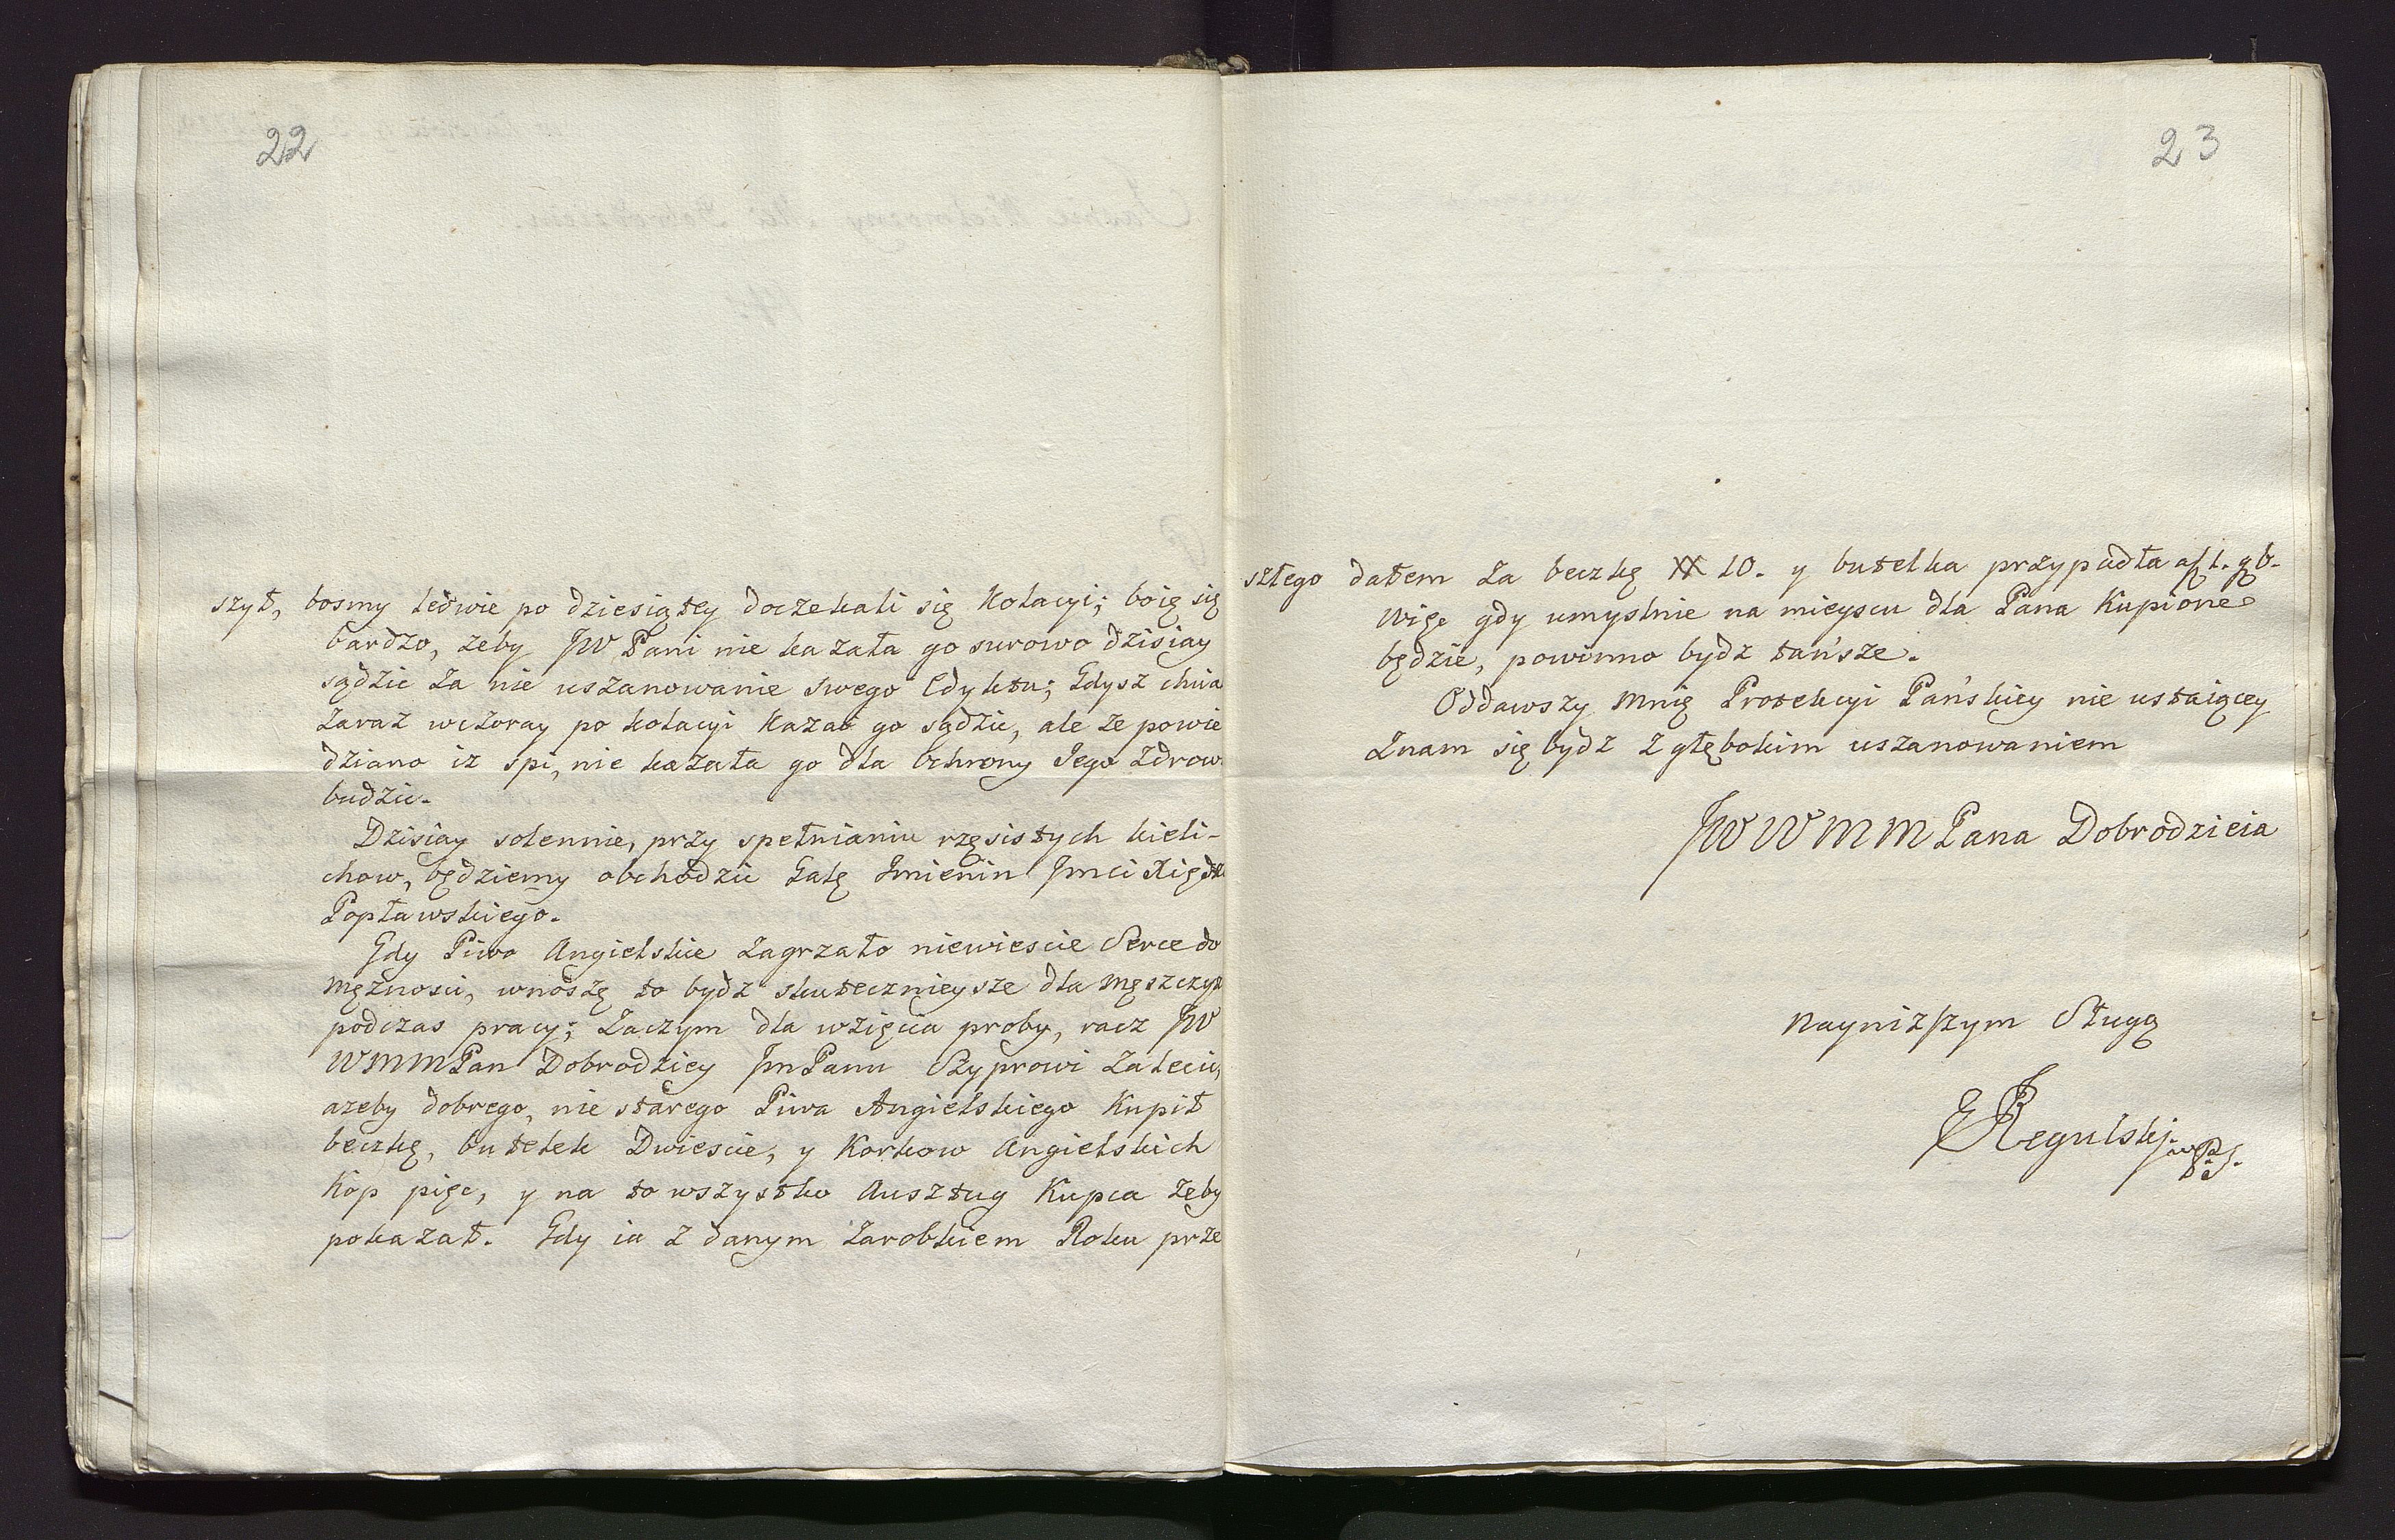 22
szył, bosmy ledwie po dziesiątey doczekali się Kolacyi; boię się
bardzo, zeby JW Pani nie kazała go surowo dzisiay
sądzic za nie uszanowanie swego Edyktu; Gdysz chcia
zaraz wczoray po kolacyi kazać go sądzic, ale ze powie
dziano iz spi, nie kazała go dla Ochrony Jego zdrow
budzic.
Dzisiay solennie, przy spełnianiu rzęsistych kieli-
chow, będziemy obchodzic Galę Jmienin Jmci Xiędza
Popławskiego.
Gdy Piwo Angielskie zagrzało niewiescie Serce do
mężnosci, wnoszę to bydz skutecznieysze dla męszczyz
podczas pracy; Zaczym dla wzięcia proby, racz JW
WMMPan Dobrodziey JmPanu Szyprowi zalecic,
azeby dobrego, nie starego Piwa Angielskiego Kupił
beczkę, butelek Dwiescie, y Korkow Angielskich
Kop pięc, y na to wszystko Ausztug Kupca zeby
pokazał. Gdy ia z danym zarobkiem Roku prze
23
szłego dałem za beczkę 10. y butelka przypadła
Więc gdy umyslnie na mieyscu dla Pana Kupione
będzie, powinno bydz tańsze.
Oddawszy mnię Protekcyi Pańskiey nie ustaiącey
Znam się bydz z głębokim uszanowaniem
JWWMMPana Dobrodzieia
Nayniższym Sługą
Regulski